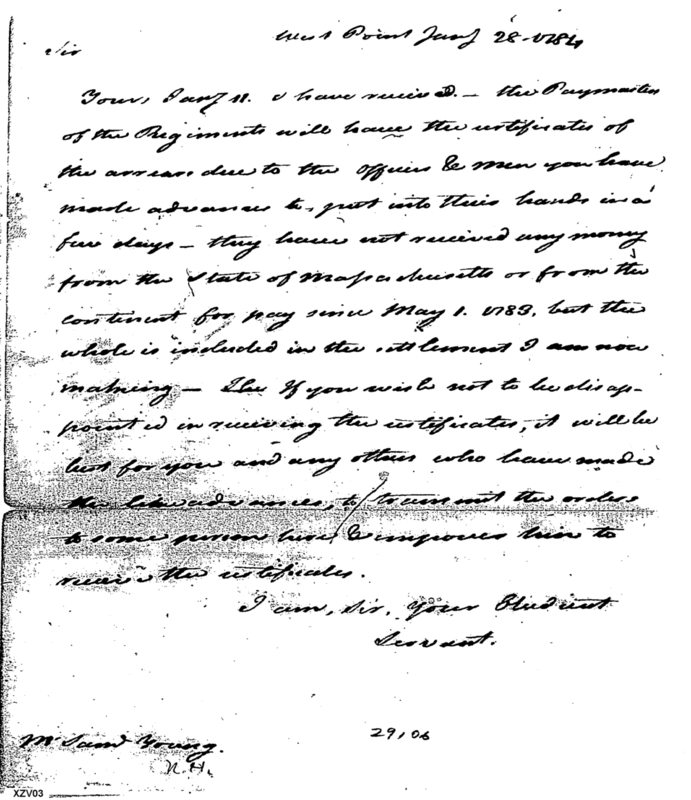 West Point Jany 28. 1784
Sir
Your, Jany 11. I have received. – the Paymasters
of the Regiments will have the certificates of
the arrears due to the officers & men you have
made advances to, put into their hands in a
few days – they have not received any money
from the State of Massachusetts or from the
continent for pay since May 1. 1783, but the
whole is included in the settlement I am now
making – If you wish not to be disap-
pointed in receiving the certificates, it will be
best for you and any others who have made
the like advances, to transmit the orders
to some person here & empower him to
receive the certificates.
I am, Sir, Your Obedient
Servant.
29,06
Mr Saml Young.
N.H.
XZV03